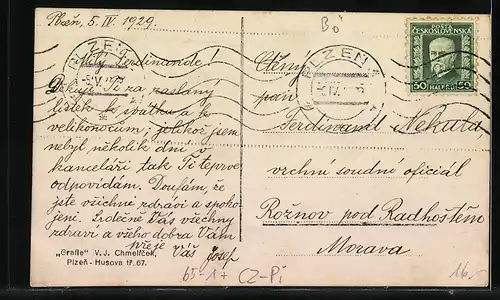 Plzeň, 5. IV. 1929.
Milý Ferdinande!
Děkuji Ti za zaslaný
lístek k svátku a k
velikonocům; jelikož jsem
nebyl několik dní v
kanceláři tak Ti teprve
odpovídám. Doufám, že
jste všichni zdrávi a spoko-
jeni. Srdečně Vás všechny
zdraví a všeho dobra Vám
přeje Váš Josef
"Grafie" V. J. Chmelíček,
Plzeň - Husova tř. 67.
PLZEŇ 1
PLZEŇ 1
POŠTA
ČESKOSLOVENSKÁ
50 HALÉŘŮ 50
Ctěný
pan
Ferdinand Nekula
vrchní soudní oficiál
Rožnov pod Radhoštěm
Morava
65-17 CZ-Pi
16.-